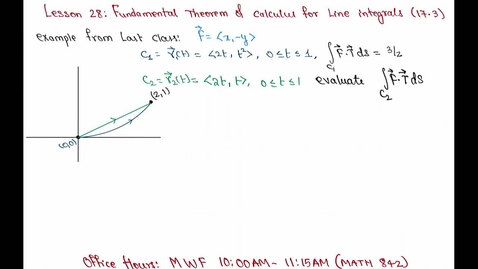 Lesson 28: Fundamental Theorem of calculus for Line integrals (17.3)
example from Last class: F⃗ = <x, -y>
C₁ = r⃗₁(t) = <2t, t²>, 0 ≤ t ≤ 1, ∫_C₁ F⃗·T⃗ ds = 3/2
C₂ = r⃗₂(t) = <2t, t>, 0 ≤ t ≤ 1 evaluate ∫_C₂ F⃗·T⃗ ds
(2,1)
(0,0)
Office Hours: MWF 10:00AM - 11:15AM (MATH 842)